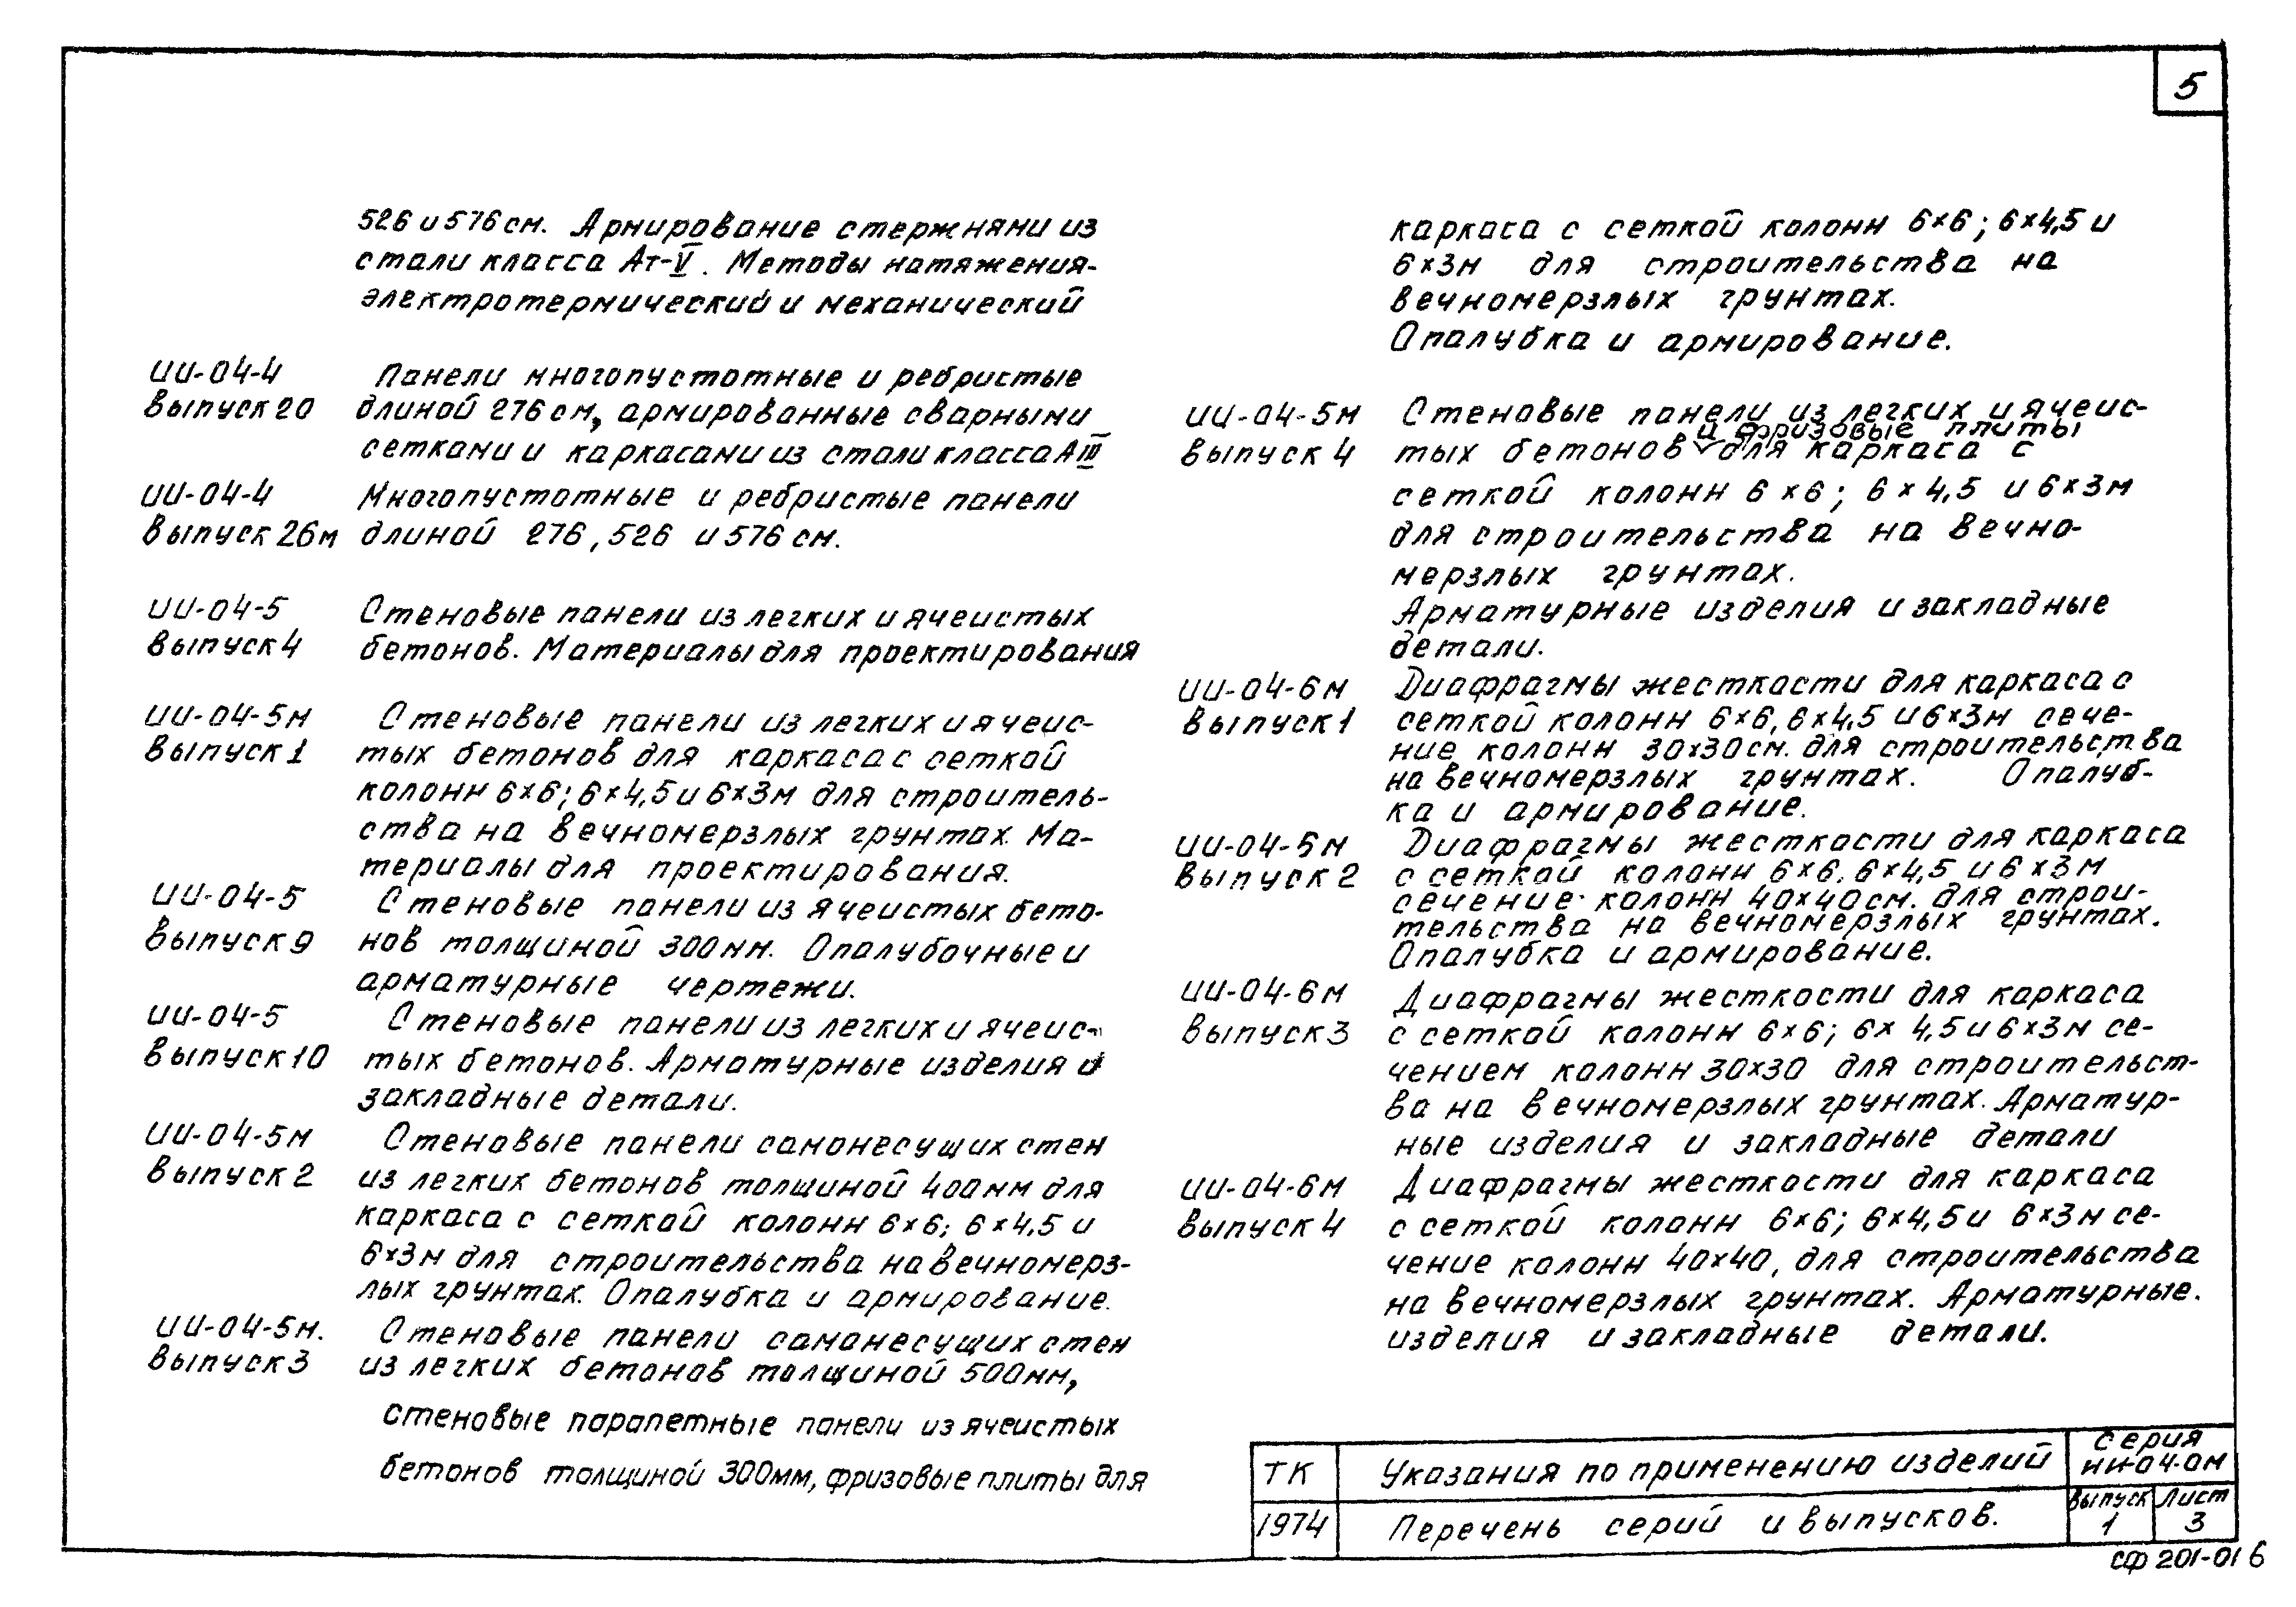 5
526 и 576 см. Армирование стержнями из
стали класса Ат-V. Методы натяжения-
электротермический и механический
ИИ-04-4 Панели многопустотные и ребристые
выпуск 20 длиной 276 см, армированные сварными
сетками и каркасами из стали класса А III
ИИ-04-4 Многопустотные и ребристые панели
выпуск 26м длиной 276, 526 и 576 см.
ИИ-04-5 Стеновые панели из легких и ячеистых
выпуск 4 бетонов. Материалы для проектирования
ИИ-04-5м Стеновые панели из легких и ячеис-
выпуск 1 тых бетонов для каркаса с сеткой
колонн 6×6; 6×4,5 и 6×3м для строитель-
ства на вечномерзлых грунтах. Ма-
териалы для проектирования.
ИИ-04-5 Стеновые панели из ячеистых бето-
выпуск 9 нов толщиной 300мм. Опалубочные и
арматурные чертежи.
ИИ-04-5 Стеновые панели из легких и ячеис-
выпуск 10 тых бетонов. Арматурные изделия и
закладные детали.
ИИ-04-5м Стеновые панели самонесущих стен
выпуск 2 из легких бетонов толщиной 400мм для
каркаса с сеткой колонн 6×6; 6×4,5 и
6×3м для строительства на вечномерз-
лых грунтах. Опалубка и армирование.
ИИ-04-5м. Стеновые панели самонесущих стен
выпуск 3 из легких бетонов толщиной 500мм,
стеновые парапетные панели из ячеистых
бетонов толщиной 300мм, фризовые плиты для
каркаса с сеткой колонн 6×6; 6×4,5 и
6×3м для строительства на
вечномерзлых грунтах.
Опалубка и армирование.
ИИ-04-5м Стеновые панели из легких и ячеис-
и фризовые плиты
выпуск 4 тых бетонов для каркаса с
сеткой колонн 6×6; 6×4,5 и 6×3м
для строительства на вечно-
мерзлых грунтах.
Арматурные изделия и закладные
детали.
ИИ-04-6м Диафрагмы жесткости для каркаса с
выпуск 1 сеткой колонн 6×6, 6×4,5 и 6×3м сече-
ние колонн 30×30см. для строительства
на вечномерзлых грунтах. Опалуб-
ка и армирование.
ИИ-04-5м Диафрагмы жесткости для каркаса
выпуск 2 с сеткой колонн 6×6, 6×4,5 и 6×3м
сечение колонн 40×40см. для строи-
тельства на вечномерзлых грунтах.
Опалубка и армирование.
ИИ-04-6м Диафрагмы жесткости для каркаса
выпуск 3 с сеткой колонн 6×6; 6×4,5 и 6×3м се-
чением колонн 30×30 для строительст-
ва на вечномерзлых грунтах. Арматур-
ные изделия и закладные детали
ИИ-04-6м Диафрагмы жесткости для каркаса
выпуск 4 с сеткой колонн 6×6; 6×4,5 и 6×3м се-
чение колонн 40×40, для строительства
на вечномерзлых грунтах. Арматурные.
изделия и закладные детали.
ТК Указания по применению изделий
1974 Перечень серий и выпусков.
Серия
ИИ-04-0м
Выпуск Лист
1 3
СФ 201-01 6